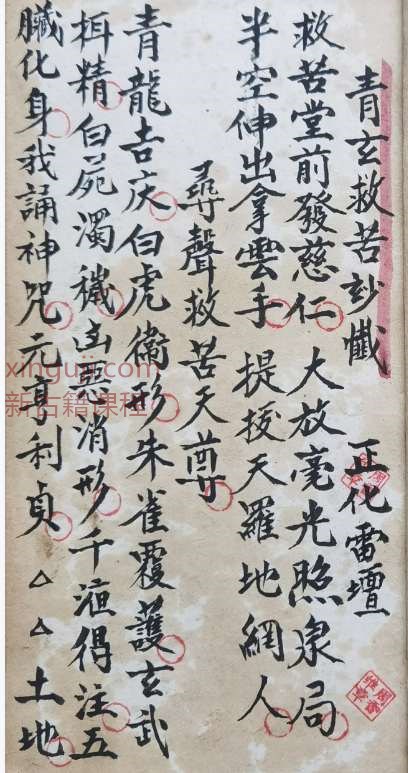 青玄救苦妙懺 正化雷壇
救苦堂前發慈仁 大放毫光照泉局
半空伸出拿雲手 提拔天羅地網人
尋聲救苦天尊
青龍吉庆白虎衛形朱雀覆護玄武
精白苑濁穢凶惡消形千得注五
臟化身我誦神咒元亨利貞△△土地
xinguji.com
新古籍课程